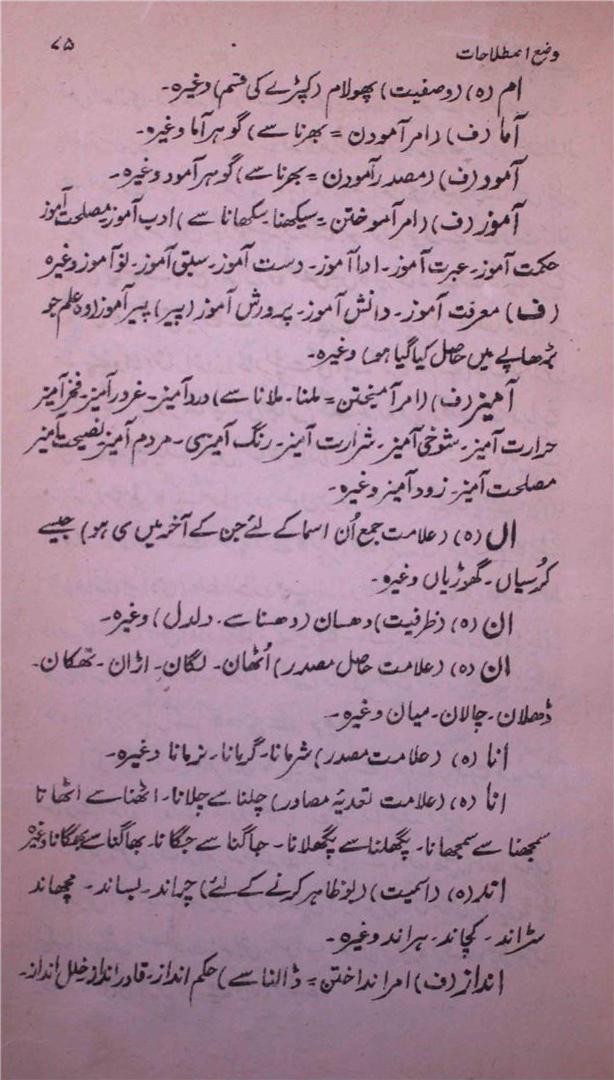 وضع اصطلاحات ۷۵
ام (ہ) (وصفیت) پھولام (کپڑے کی قسم) وغیرہ۔
آما (ف) (امر آمودن = بھرنا سے) گوہر آما وغیرہ۔
آمود (ف) (مصدر آمودن = بھرنا سے) گوہر آمود وغیرہ۔
آموز (ف) (امر آموختن = سیکھنا سکھانا سے) ادب آموز۔ مصلحت آموز
حکمت آموز۔ عبرت آموز۔ ادا آموز۔ دست آموز۔ سبق آموز۔ نو آموز وغیرہ
(ف) معرفت آموز۔ دانش آموز۔ پرورش آموز (پیر) پیر آموز (وہ علم جو
بڑھاپے میں حاصل کیا گیا ہو) وغیرہ۔
آمیز (ف) (امر آمیختن = ملنا۔ ملانا سے) درد آمیز۔ غرور آمیز۔ فخر آمیز
حرارت آمیز۔ شوخی آمیز۔ شرارت آمیز۔ رنگ آمیزی۔ مردم آمیز۔ نصیحت آمیز
مصلحت آمیز۔ زود آمیز وغیرہ۔
اں (ہ) (علامت جمع اُن اسما کے لئے جن کے آخر میں ی ہو) جیسے
کرُسیاں۔ گھوڑیاں وغیرہ۔
ان (ہ) (ظرفیت) دھسان (دھسنا سے۔ دلدل) وغیرہ۔
ان (ہ) (علامت حاصل مصدر) اُٹھان۔ لگان۔ اڑان۔ تھکان۔
ڈھلان۔ چالان۔ میان وغیرہ۔
انا (ہ) (علامت مصدر) شرمانا۔ گرمانا۔ نرمانا وغیرہ۔
انا (ہ) (علامت تعدیۂ مصادر) چلنا سے چلانا۔ اٹھنا سے اٹھانا
سمجھنا سے سمجھانا۔ پگھلنا سے پگھلانا۔ جاگنا سے جگانا۔ بھاگنا سے بھگانا وغیرہ
اند (ہ) (اسمیت) (بو ظاہر کرنے کے لئے) چراند۔ بساند۔ مچھاند
سڑاند۔ کچاند۔ ہراند وغیرہ۔
انداز (ف) امر انداختن = ڈالنا سے) حکم انداز۔ قادر انداز۔ خلل انداز۔